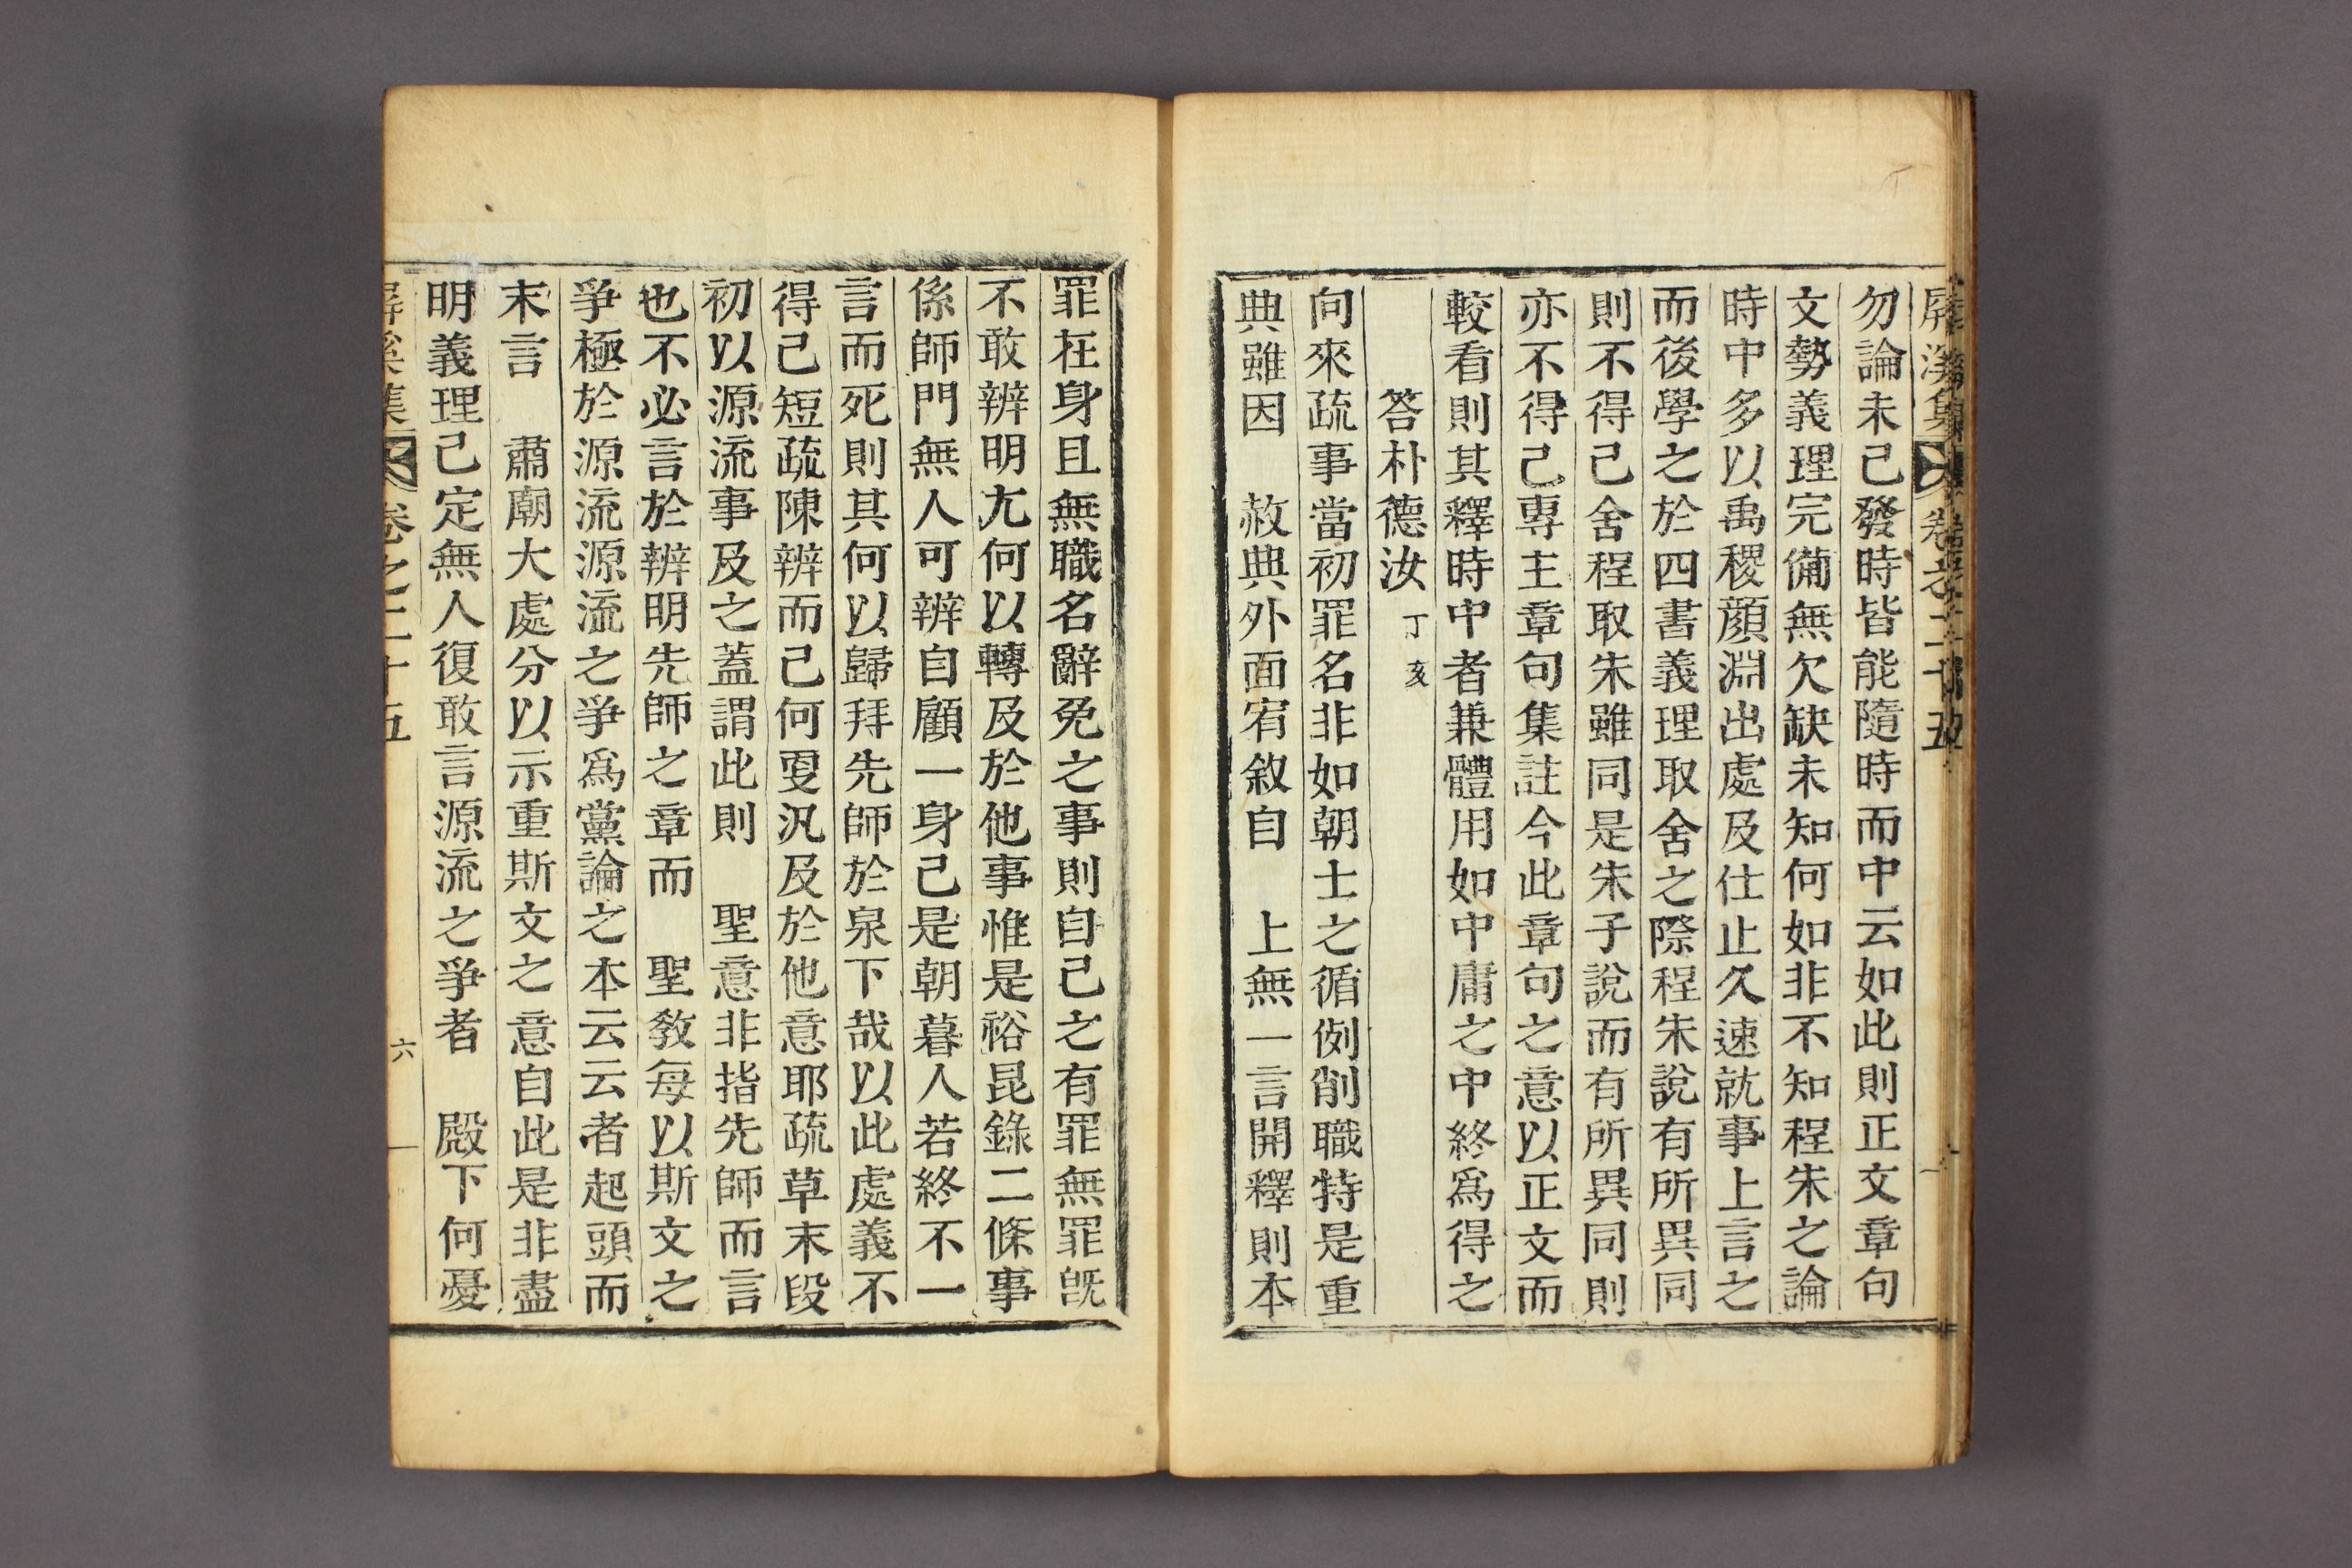 屏溪集 卷之二十五
勿論未已發時皆能隨時而中云如此則正文章句
文勢義理完備無欠缺未知何如非不知程朱之論
時中多以禹稷顔淵出處及仕止久速就事上言之
而後學之於四書義理取舍之際程朱說有所異同
則不得已舍程取朱雖同是朱子說而有所異同則
亦不得已專主章句集註今此章句之意以正文而
較看則其釋時中者兼體用如中庸之中終爲得之
答朴德汝 丁亥
向來疏事當初罪名非如朝士之循例削職特是重
典雖因 赦典外面宥敘自 上無一言開釋則本
罪在身且無職名辭免之事則自己之有罪無罪旣
不敢辨明尤何以轉及於他事惟是裕昆錄二條事
係師門無人可辨自顧一身已是朝暮人若終不一
言而死則其何以歸拜先師於泉下哉以此處義不
得已短疏陳辨而已何更汎及於他意耶疏草末段
初以源流事及之蓋謂此則 聖意非指先師而言
也不必言於辨明先師之章而 聖敎每以斯文之
爭極於源流源流之爭爲黨論之本云云者起頭而
末言 肅廟大處分以示重斯文之意自此是非盡
明義理已定無人復敢言源流之爭者 殿下何憂
屏溪集 卷之二十五 六